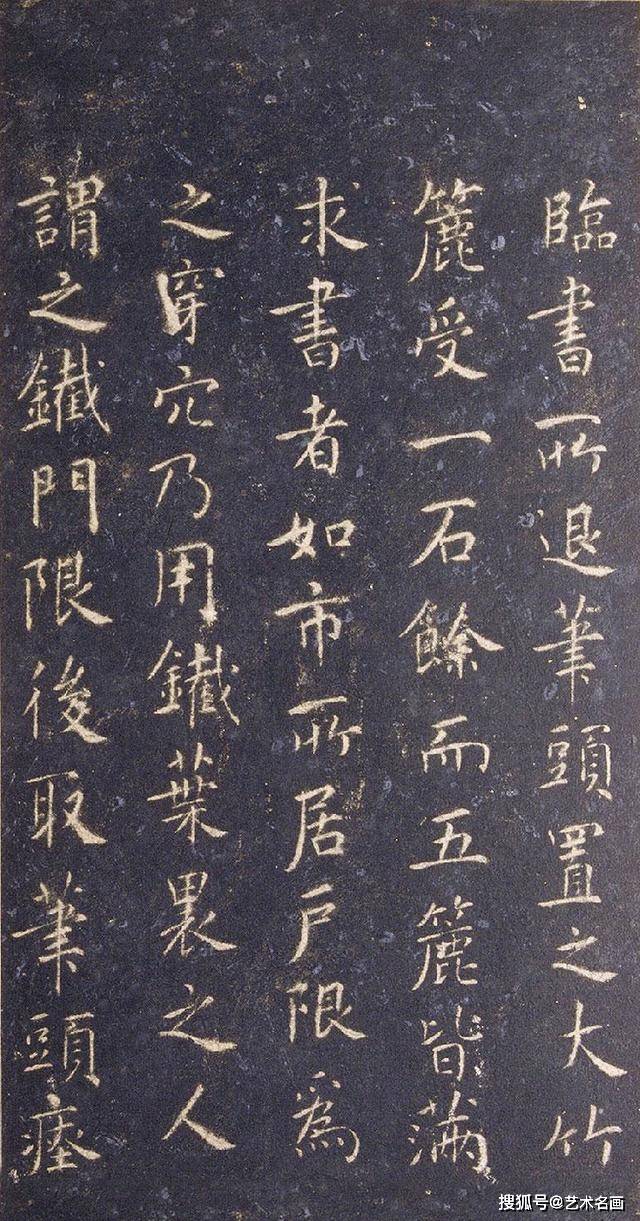 臨書所退筆頭置之大竹
簏受一石餘而五簏皆滿
求書者如市所居戶限為
之穿穴乃用鐵葉裹之人
謂之鐵門限後取筆頭瘞
搜狐号@艺术名画